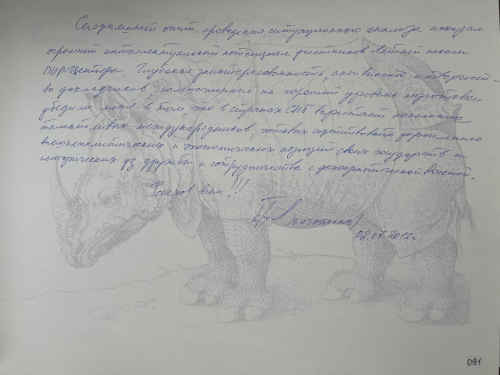 Сегодняшний опыт проведения ситуационного анализа показал
огромный интеллектуальный потенциал участников Летней школы
ПИР-Центра. Глубокая заинтересованность, активность и творчест-
во докладчиков, помноженные на хороший уровень подготовки
убедили меня в том что в странах СНГ вырастает поколение
талантливых международников, готовых содействовать укреплению
внешнеполитических и экономических позиций своих государств и
исторических уз дружбы и сотрудничества с демократической Россией.
Успехов всем!!!
02.07.2012г.
091